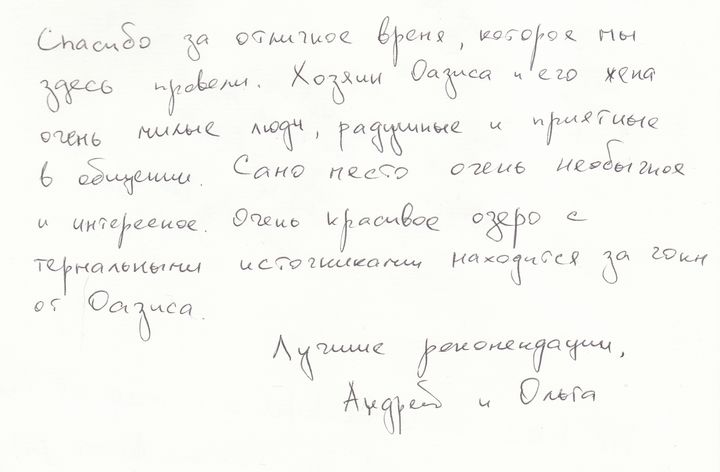 Спасибо за отличное время, которое мы
здесь провели. Хозяин Оазиса и его жена
очень милые люди, радушные и приятные
в общении. Само место очень необычное
и интересное. Очень красивое озеро с
термальными источниками находится за 20км
от Оазиса.
Лучшие рекомендации,
Андрей и Ольга